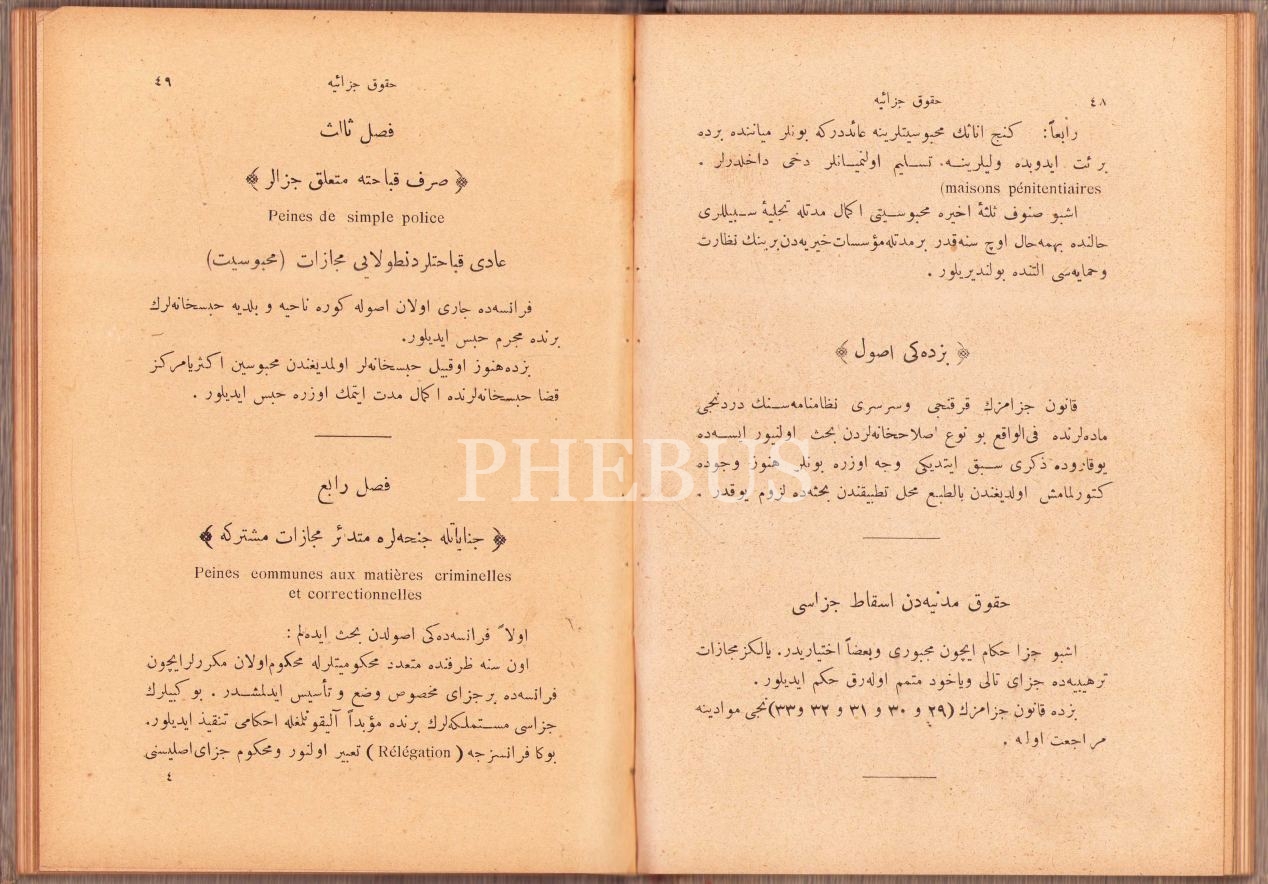 ٤٨
حقوق جزائيه
رابعاً: كنج اناثك محبوسيتلرينه عائددركه بونلر مياننده برده
برئت ايدوبده وليلرينه. تسليم اولنميانلر دخى داخلدرلر .
(maisons pénitentiaires
اشبو صنوف ثلثۀ اخيره محبوسيتى اكمال مدتله تجليۀ سبيللرى
حالنده بهمه‌حال اوچ سنه‌قدر برمدتله مؤسسات خيريه‌دن برينك نظارت
وحمايه‌سى التنده بولنديريلور .
﴿ بزده‌كى اصول ﴾
قانون جزامزك قرقنجى وسرسرى نظامنامه‌سنك دردنجى
ماده‌لرنده فى‌الواقع بو نوع اصلاحخانه‌لردن بحث اولنيور ايسه‌ده
يوقاروده ذكرى سبق ايتديكى وجه اوزره بونلر هنوز وجوده
كتورلمامش اولديغندن بالطبع محل تطبيقندن بحثه‌ده لزوم يوقدر .
حقوق مدنيه‌دن اسقاط جزاسى
اشبو جزا حكام ايچون مجبورى وبعضاً اختياريدر. يالكز مجازات
ترهيبيه‌ده جزاى تالى وياخود متمم اوله‌رق حكم ايديلور .
بزده قانون جزامزك (٢٩ و ٣٠ و ٣١ و ٣٢ و٣٣)نجى موادينه
مراجعت اوله .
حقوق جزائيه
٤٩
فصل ثالث
﴿ صرف قباحته متعلق جزالر ﴾
Peines de simple police
عادى قباحتلردنطولايى مجازات (محبوسيت)
فرانسه‌ده جارى اولان اصوله كوره ناحيه و بلديه حبسخانه‌لرك
برنده مجرم حبس ايديلور.
بزده‌هنوز اوقبيل حبسخانه‌لر اولمديغندن محبوسين اكثريامركز
قضا حبسخانه‌لرنده اكمال مدت ايتمك اوزره حبس ايديلور .
فصل رابع
﴿ جناياتله جنحه‌لره متدائر مجازات مشتركه ﴾
Peines communes aux matières criminelles
et correctionnelles
اولاً فرانسه‌ده‌كى اصولدن بحث ايده‌لم :
اون سنه ظرفنده متعدد محكوميتلرله محكوم‌اولان مكررلرايچون
فرانسه‌ده برجزاى مخصوص وضع و تأسيس ايدلمشدر . بوكبيلرك
جزاسى مستملكه‌لرك برنده مؤبداً آليقونلمغله احكامى تنفيذ ايديلور.
بوكا فرانسزجه (Rélégation) تعبير اولنور ومحكوم جزاى‌اصليسنى
٤
PHEBUS